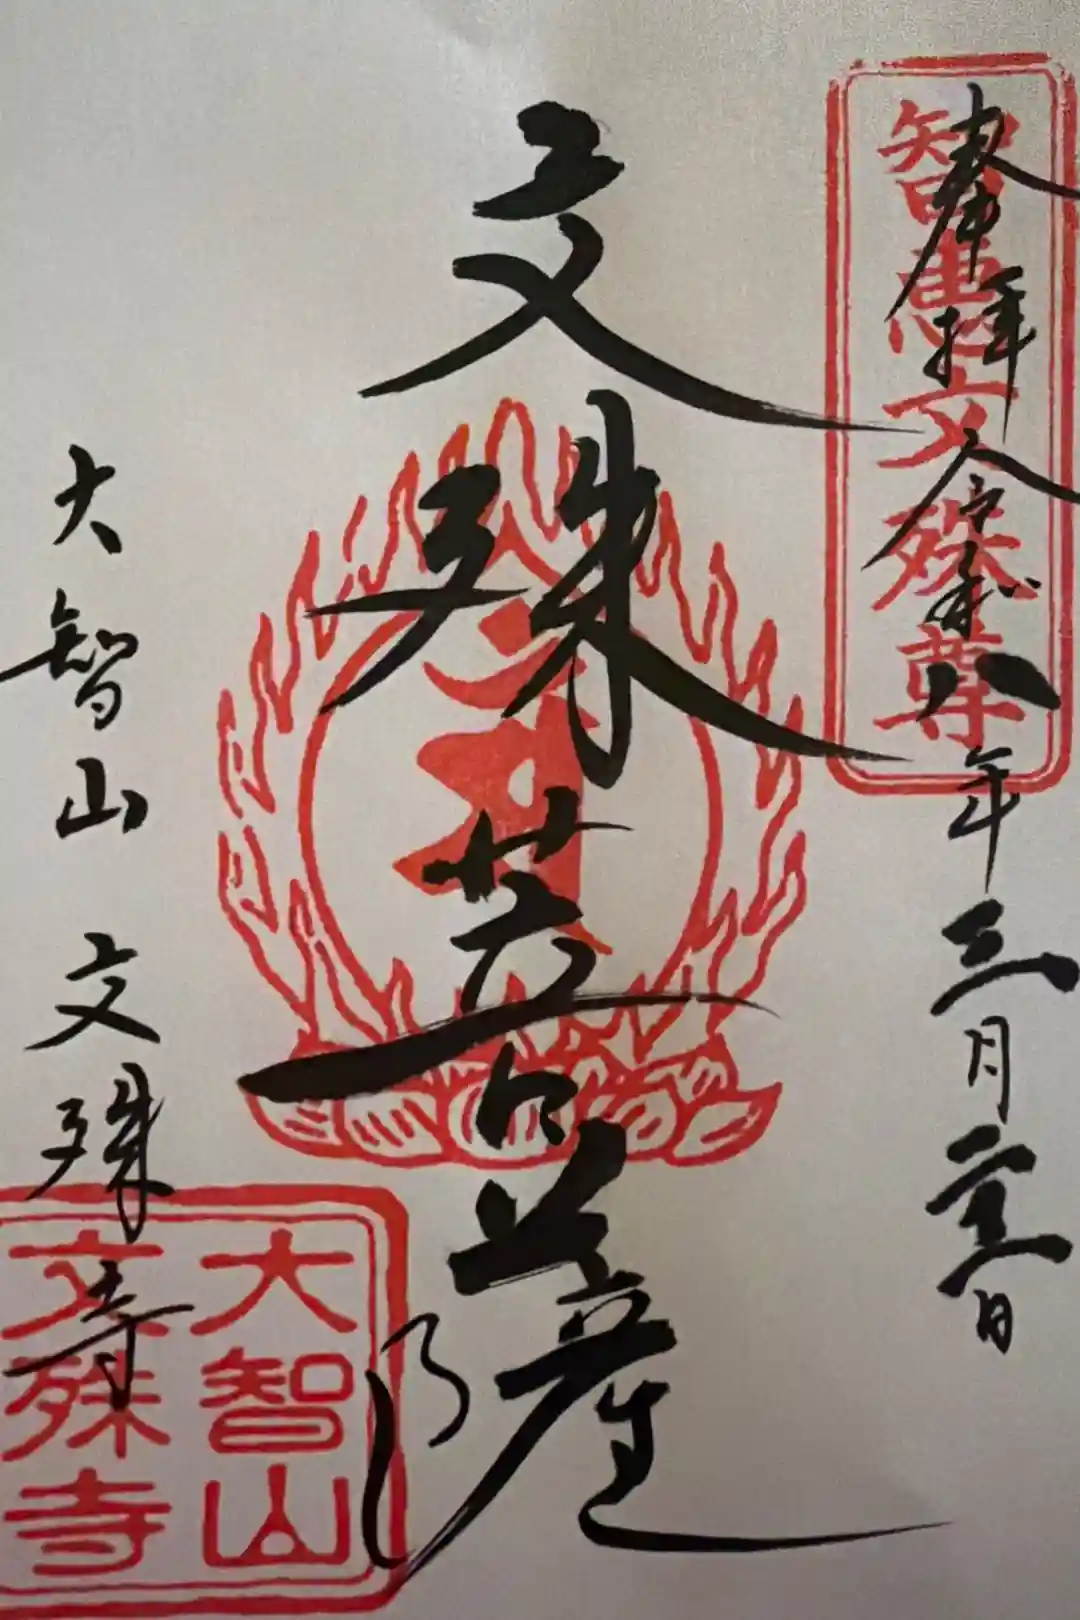 奉拝 令和八年三月 日
智恵文殊尊
文殊菩薩
大智山 文殊寺
大智山
文殊寺